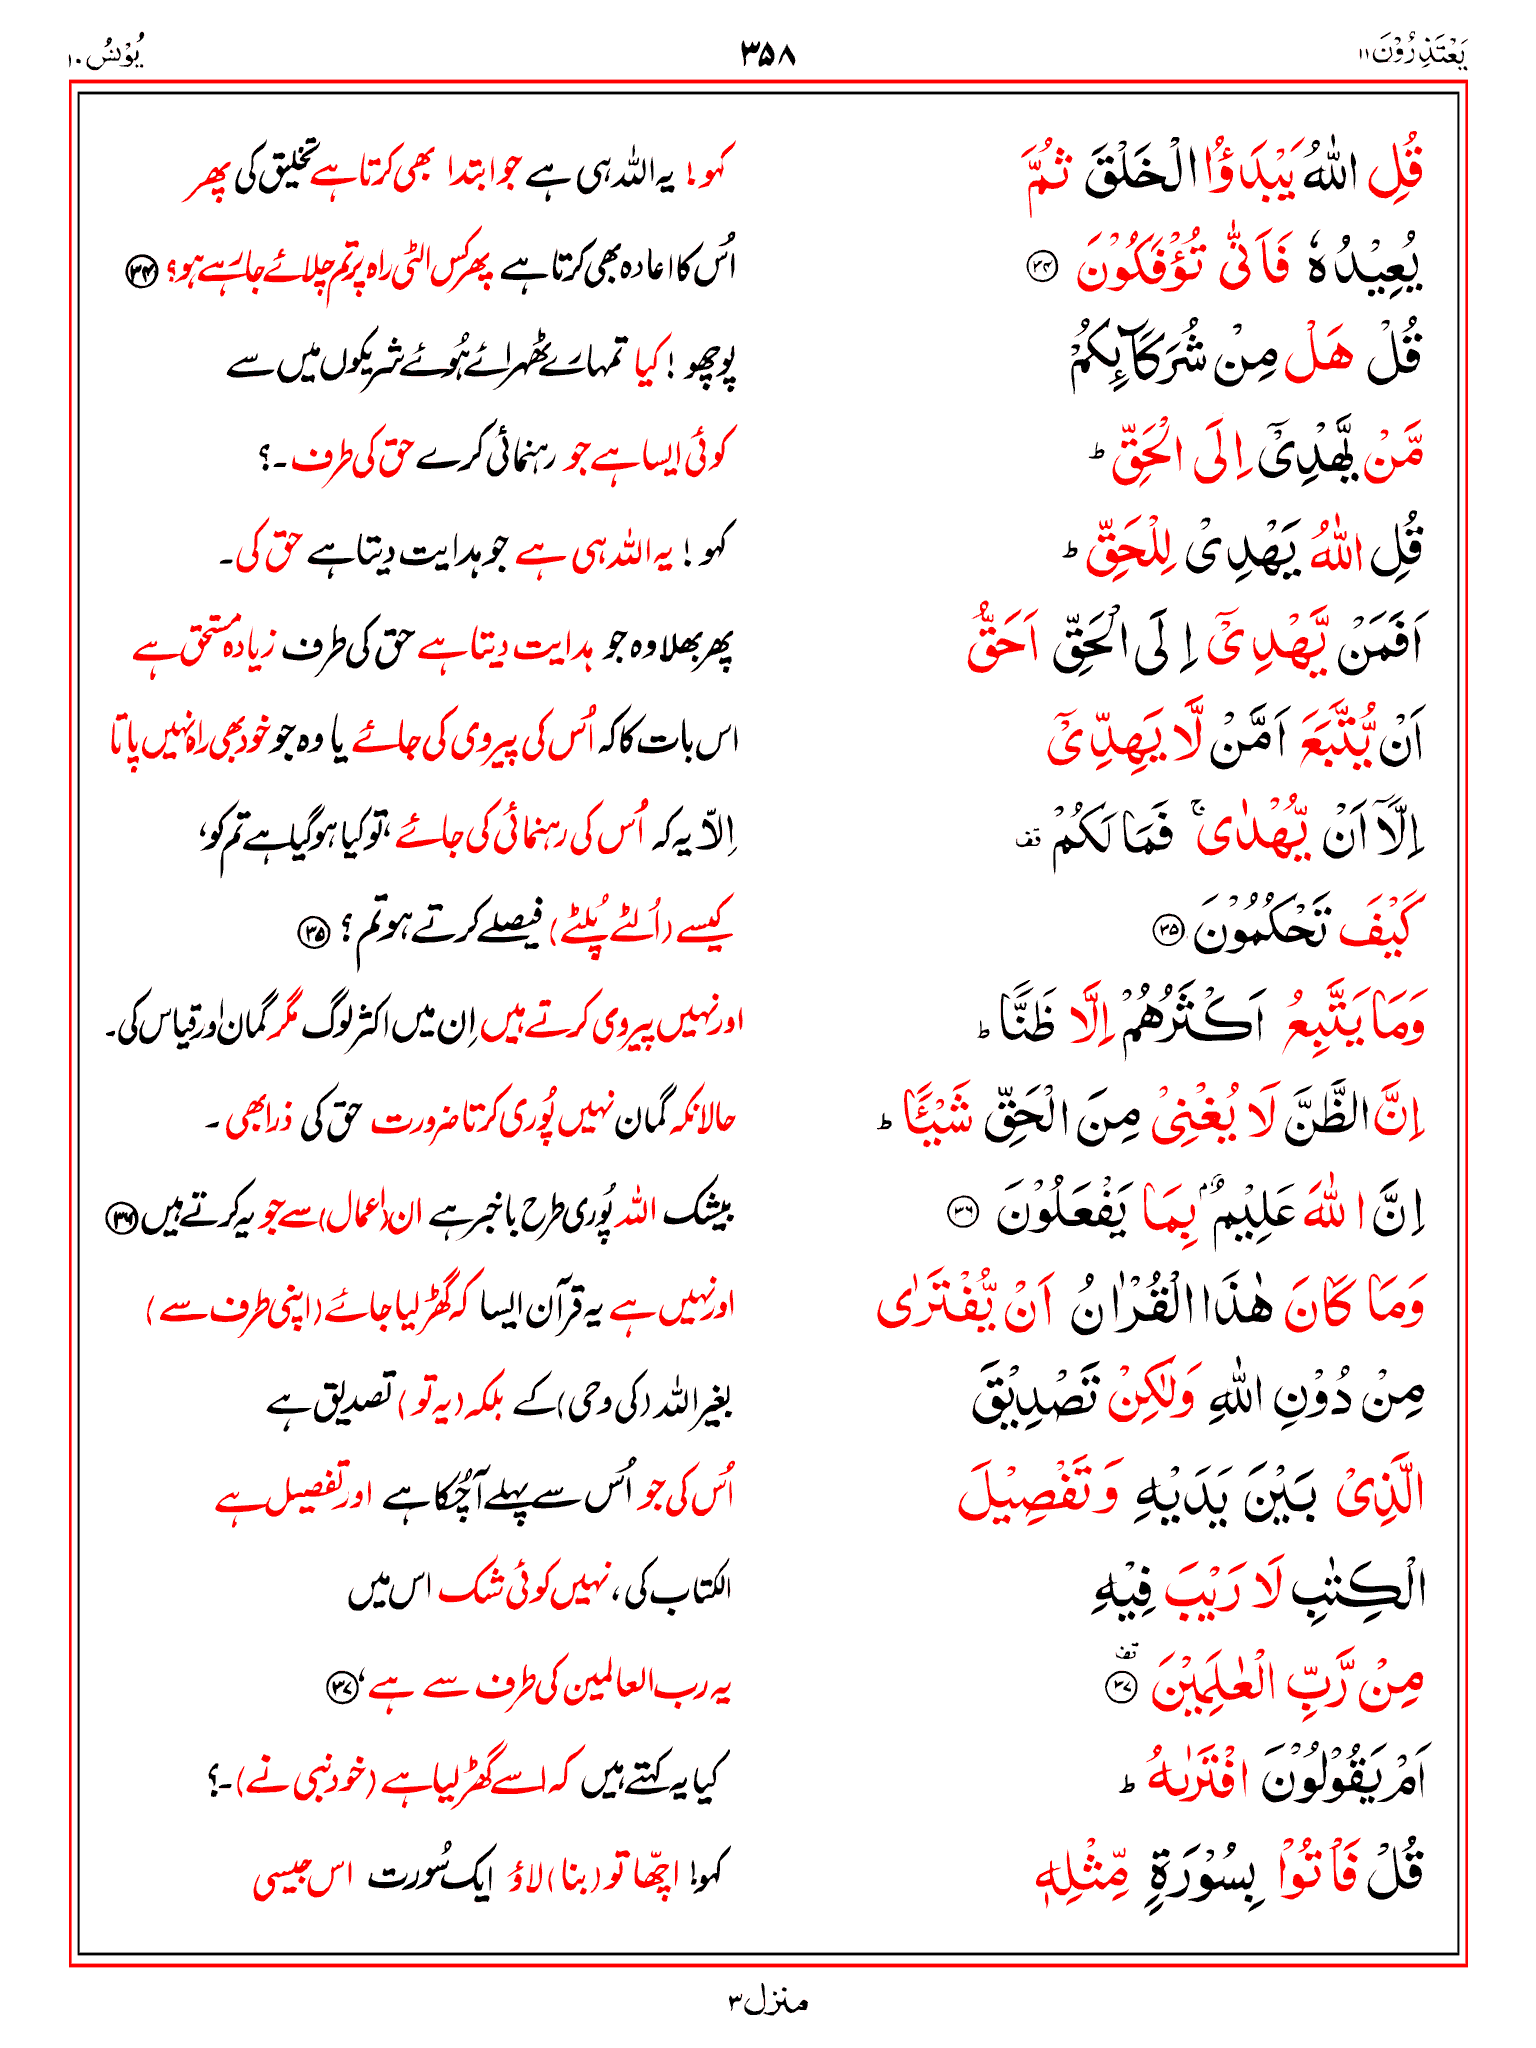 یَعْتَذِرُوْنَ ۱۱
۳۵۸
یُوْنُس ۱۰
قُلِ اللّٰهُ یَبْدَؤُا الْخَلْقَ ثُمَّ
کہو! یہ اللہ ہی ہے جو ابتدا بھی کرتا ہے تخلیق کی پھر
یُعِیْدُهٗ فَاَنّٰی تُؤْفَكُوْنَ ۳۴
اُس کا اعادہ بھی کرتا ہے پھر کس الٹی راہ پر تم چلائے جا رہے ہو؟ ۳۴
قُلْ هَلْ مِنْ شُرَكَآىِٕكُمْ
پوچھو! کیا تمہارے ٹھہرائے ہُوئے شریکوں میں سے
مَّنْ یَّهْدِیْۤ اِلَی الْحَقِّ ؕ
کوئی ایسا ہے جو رہنمائی کرے حق کی طرف۔؟
قُلِ اللّٰهُ یَهْدِیْ لِلْحَقِّ ؕ
کہو! یہ اللہ ہی ہے جو ہدایت دیتا ہے حق کی۔
اَفَمَنْ یَّهْدِیْۤ اِلَی الْحَقِّ اَحَقُّ
پھر بھلا وہ جو ہدایت دیتا ہے حق کی طرف زیادہ مستحق ہے
اَنْ یُّتَّبَعَ اَمَّنْ لَّا یَهِدِّیْۤ
اس بات کا کہ اُس کی پیروی کی جائے یا وہ جو خود بھی راہ نہیں پاتا
اِلَّاۤ اَنْ یُّهْدٰی ۚ فَمَا لَكُمْ قف
اِلاّ یہ کہ اُس کی رہنمائی کی جائے، تو کیا ہو گیا ہے تم کو،
كَیْفَ تَحْكُمُوْنَ ۳۵
کیسے (اُلٹے پُلٹے) فیصلے کرتے ہو تم؟ ۳۵
وَمَا یَتَّبِعُ اَكْثَرُهُمْ اِلَّا ظَنًّا ؕ
اور نہیں پیروی کرتے ہیں اِن میں اکثر لوگ مگر گمان اور قیاس کی۔
اِنَّ الظَّنَّ لَا یُغْنِیْ مِنَ الْحَقِّ شَیْـًٔا ؕ
حالانکہ گمان نہیں پُوری کرتا ضرورت حق کی ذرا بھی۔
اِنَّ اللّٰهَ عَلِیْمٌۢ بِمَا یَفْعَلُوْنَ ۳۶
بیشک اللہ پُوری طرح باخبر ہے ان (اعمال) سے جو یہ کرتے ہیں ۳۶
وَمَا كَانَ هٰذَا الْقُرْاٰنُ اَنْ یُّفْتَرٰی
اور نہیں ہے یہ قرآن ایسا کہ گھڑ لیا جائے (اپنی طرف سے)
مِنْ دُوْنِ اللّٰهِ وَلٰكِنْ تَصْدِیْقَ
بغیر اللہ (کی وحی) کے بلکہ (یہ تو) تصدیق ہے
الَّذِیْ بَیْنَ یَدَیْهِ وَتَفْصِیْلَ
اُس کی جو اُس سے پہلے آچُکا ہے اور تفصیل ہے
الْكِتٰبِ لَا رَیْبَ فِیْهِ
الکتاب کی، نہیں کوئی شک اس میں
مِنْ رَّبِّ الْعٰلَمِیْنَ ۳۷ قف
یہ رب العالمین کی طرف سے ہے، ۳۷
اَمْ یَقُوْلُوْنَ افْتَرٰىهُ ؕ
کیا یہ کہتے ہیں کہ اسے گھڑ لیا ہے (خود نبی نے)۔؟
قُلْ فَاْتُوْا بِسُوْرَةٍ مِّثْلِهٖ
کہو! اچھّا تو (بنا) لاؤ ایک سُورت اس جیسی
منزل ۳